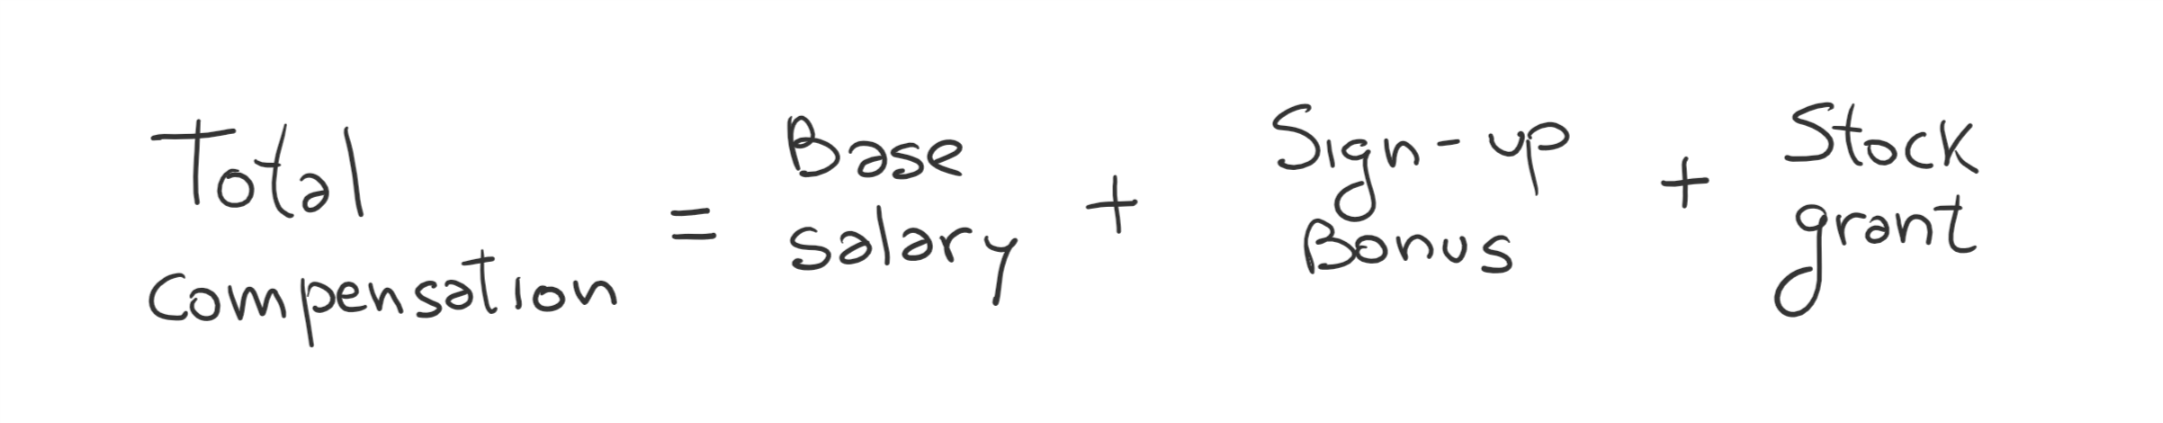 Total
compensation
=
Base
salary
+
Sign-up
Bonus
+
Stock
grant